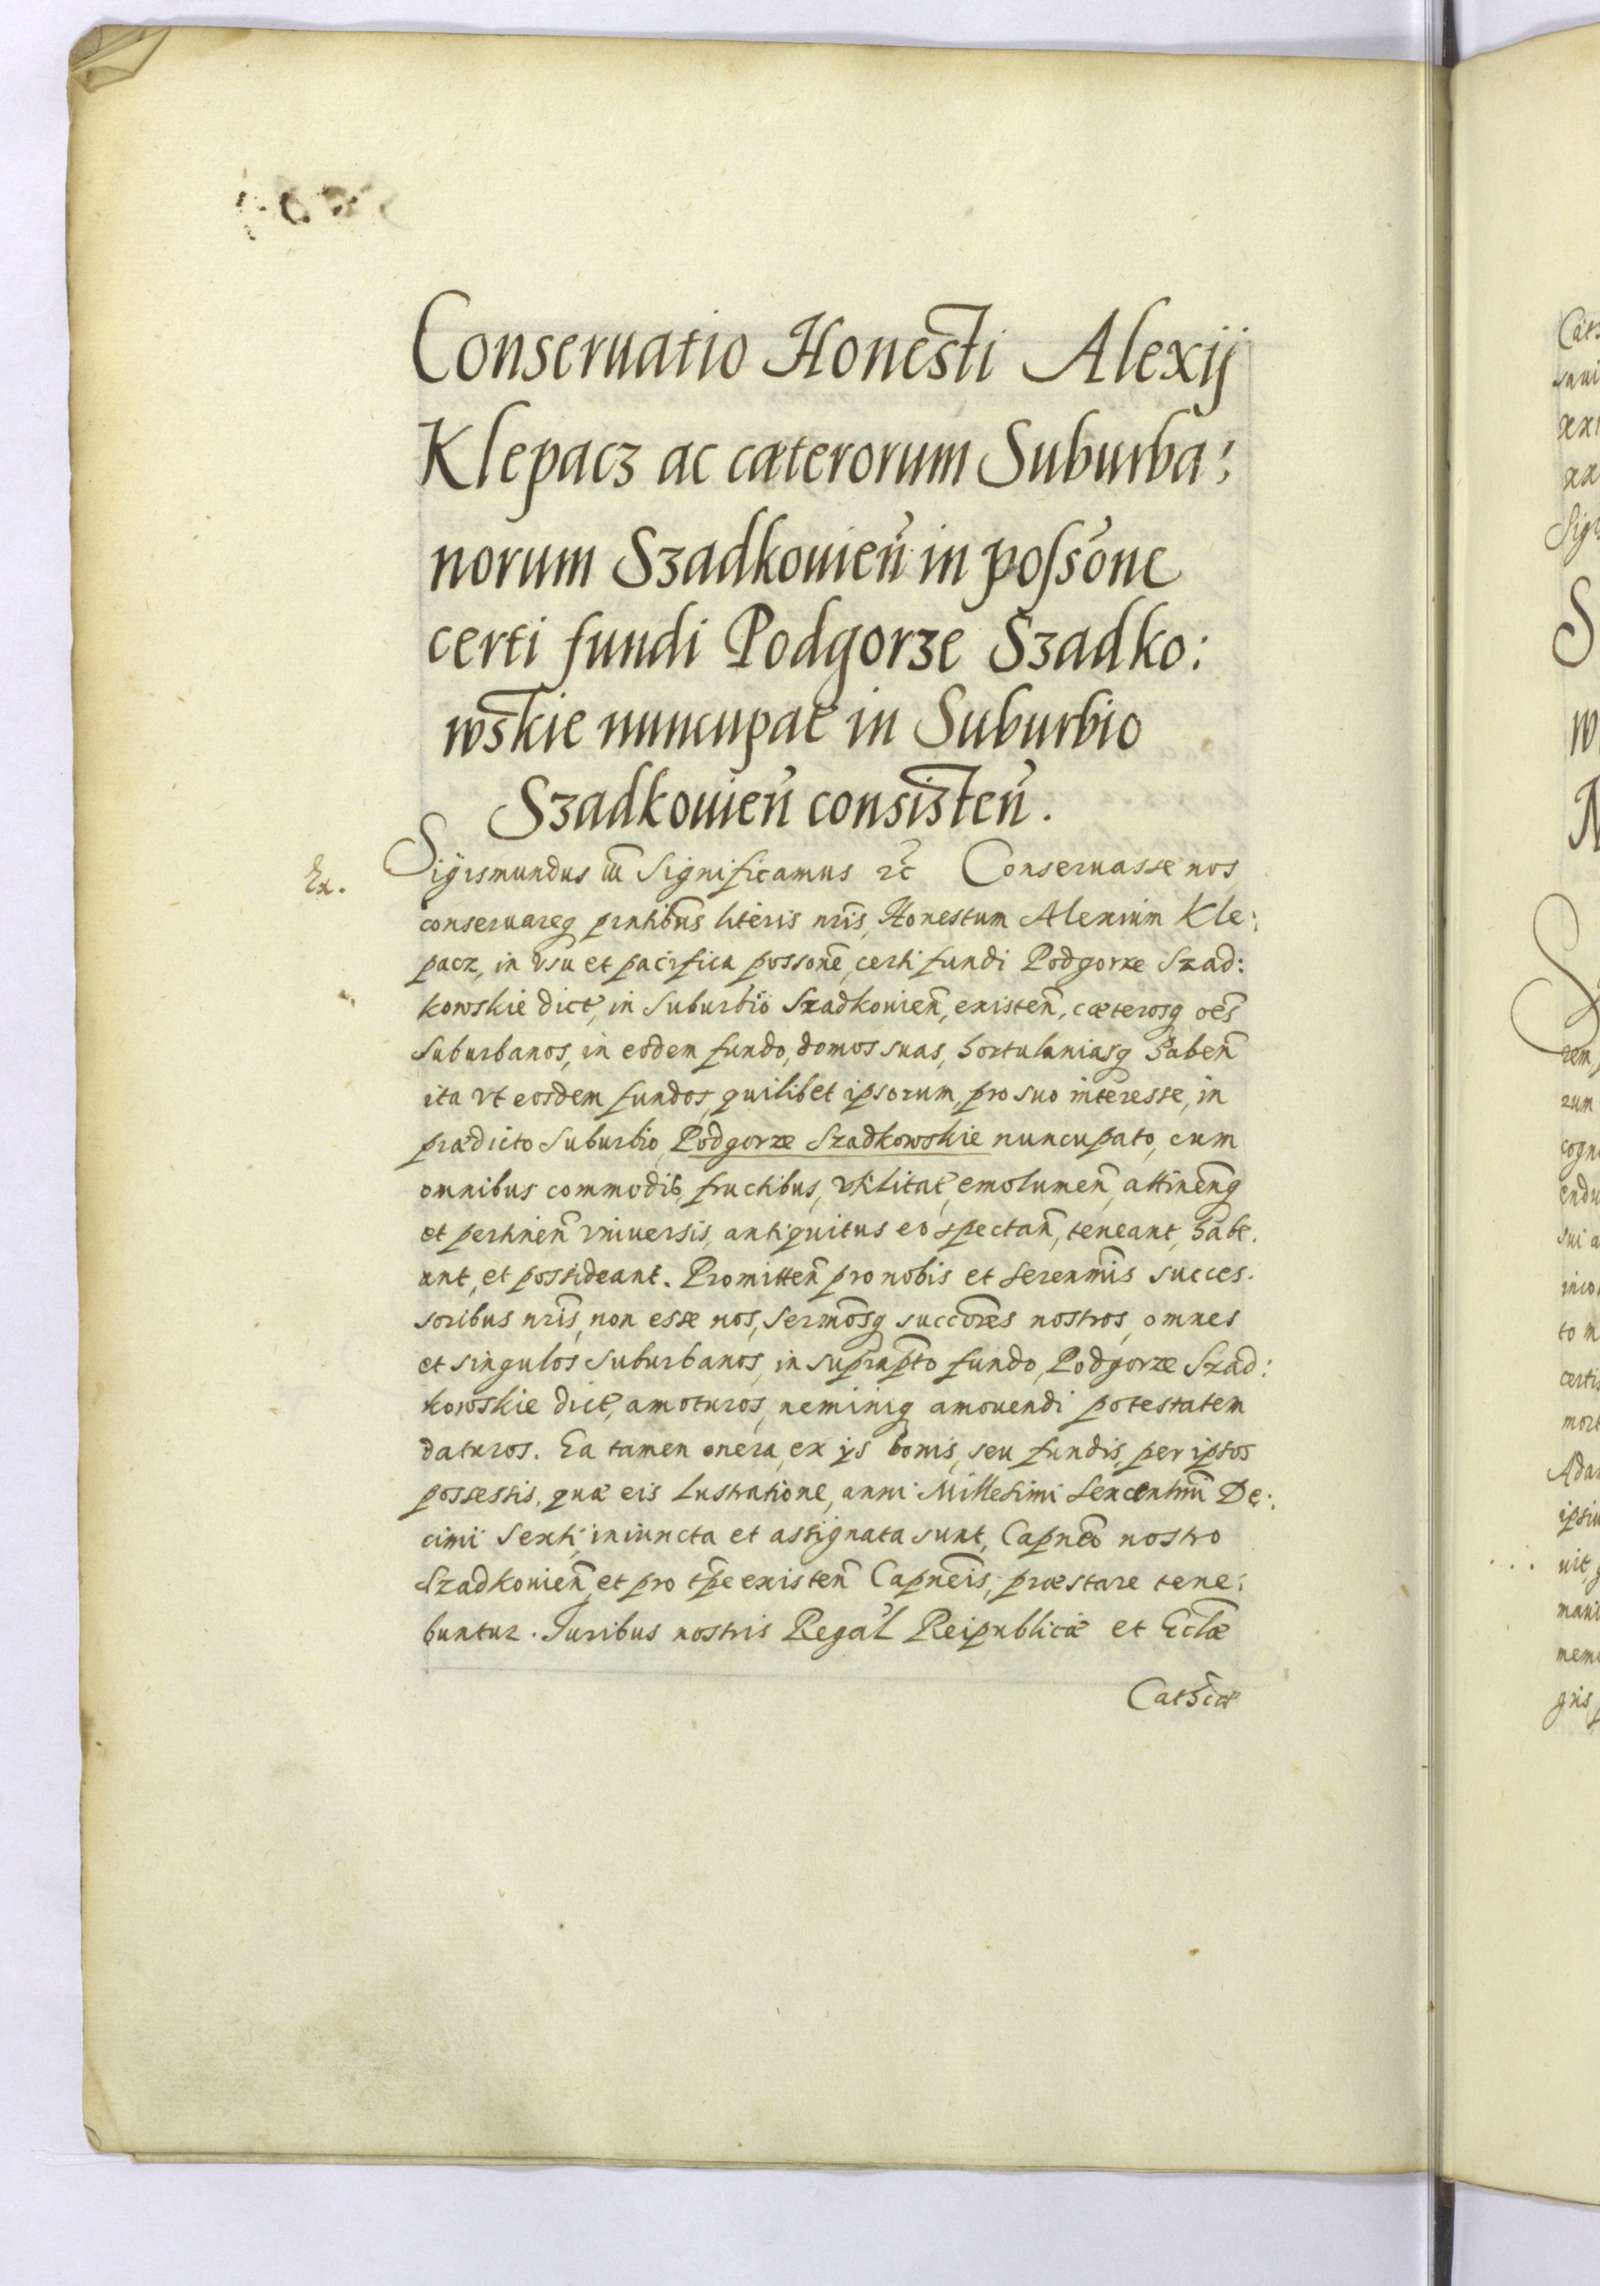 Conseruatio Honesti Alexij
Klepacz ac cæterorum Suburba:
norum Szadkouien̄ in possōne
certi fundi Podgorze Szadko:
wskie nuncupat̄ in Suburbio
Szadkouien̄ consisten̄.
Ex.
Sigismundus iii Significamus etc̄ Conseruasse nos
conseruareq̃ pn̄tibus literis nr̄is, Honestum Alexium Kle:
pacz, in vsu et pacifica possone͞, certi fundi Podgorze Szad:
kowskie dict̄, in Suburbio Szadkouien̄, existen̄, cæterosq̃ oēs
Suburbanos, in eodem fundo, domos suas, hortulaniasq̃ haben̄
ita vt eosdem fundos, quilibet ipsorum, pro suo interesse, in
prædicto Suburbio, Podgorze Szadkowskie nuncupato, cum
omnibus commodis, fructibus, vtilitat̄, emolumen̄, attinen̄q̃
et pertinen̄ vniuersis, antiquitus eo spectan̄, teneant, habe.
ant, et possideant. Promitten̄ pro nobis et Serenm̄is succes.
soribus nr̄is, non esse nos, Sermōsq̃ succōres nostros, omnes
et singulos Suburbanos, in suprapto͞ fundo, Podgorze Szad:
kowskie dict̄, amoturos, neminiq̃ amouendi potestatem
daturos. Ea tamen onera, ex ijs bonis, seu fundis, per ipsos
possessis, quæ eis Lustratione, anni Millesimi Sexcentm̄i De:
cimi Sexti, iniuncta et assignata sunt, Capnēo nostro
Szadkouien̄, et pro tp̄e existen̄ Capnēis, præstare tene:
buntur. Iuribus nostris Regal̄ Reipublicæ et Ecl̄æ
Cathcǣ